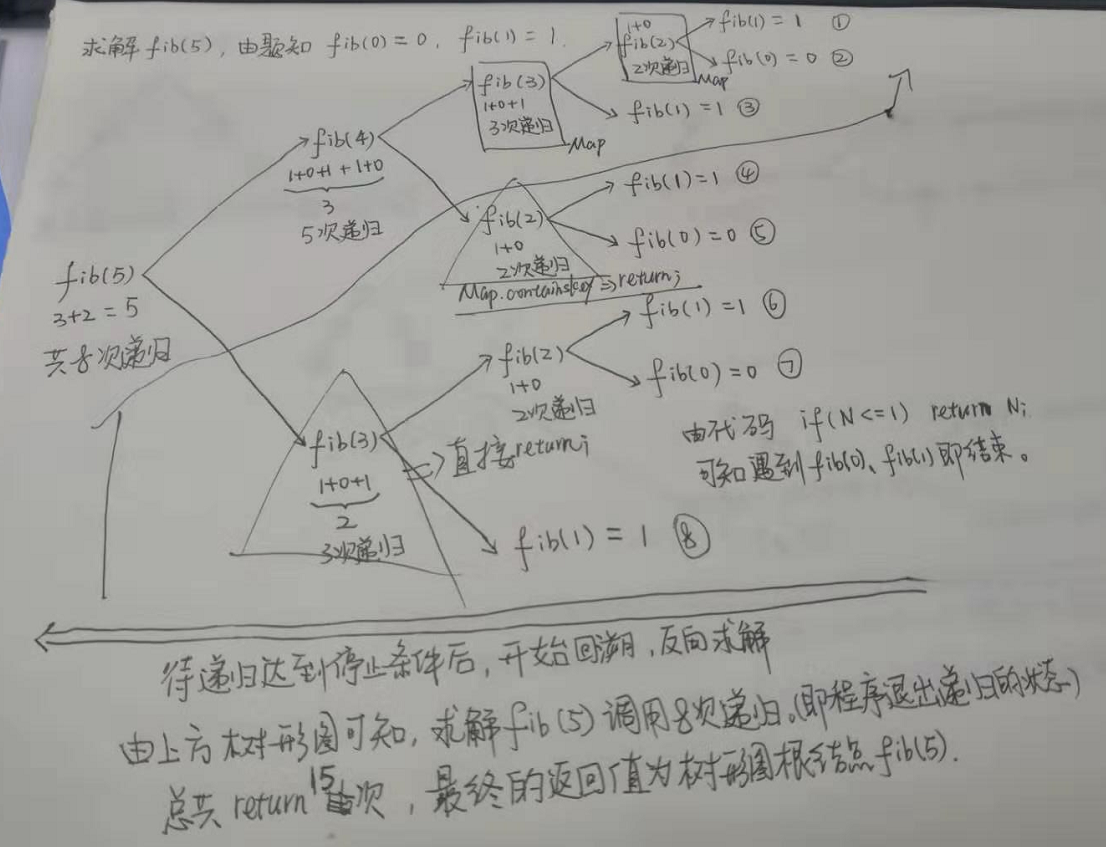 求解 fib(5), 由题知 fib(0) = 0, fib(1) = 1.
1+0
fib(2)
2次递归
Map
fib(1) = 1 ①
fib(0) = 0 ②
fib(3)
1+0+1
3次递归
Map
fib(1) = 1 ③
fib(4)
1+0+1+1+0
3
5次递归
fib(1)=1 ④
fib(2)
1+0
2次递归
fib(0)=0 ⑤
Map.containskey => return;
fib(5)
3+2=5
共8次递归
fib(1)=1 ⑥
fib(2)
1+0
2次递归
fib(0)=0 ⑦
fib(3)
1+0+1
2
3次递归
=> 直接return;
fib(1) = 1 ⑧
由代码 if(N<=1) return N;
可知遇到fib(0)、fib(1)即结束。
待递归达到停止条件后,开始回溯,反向求解
由上方树形图可知,求解fib(5)调用8次递归。(即程序退出递归的状态)
总共return 15次,最终的返回值为树形图根结点fib(5).